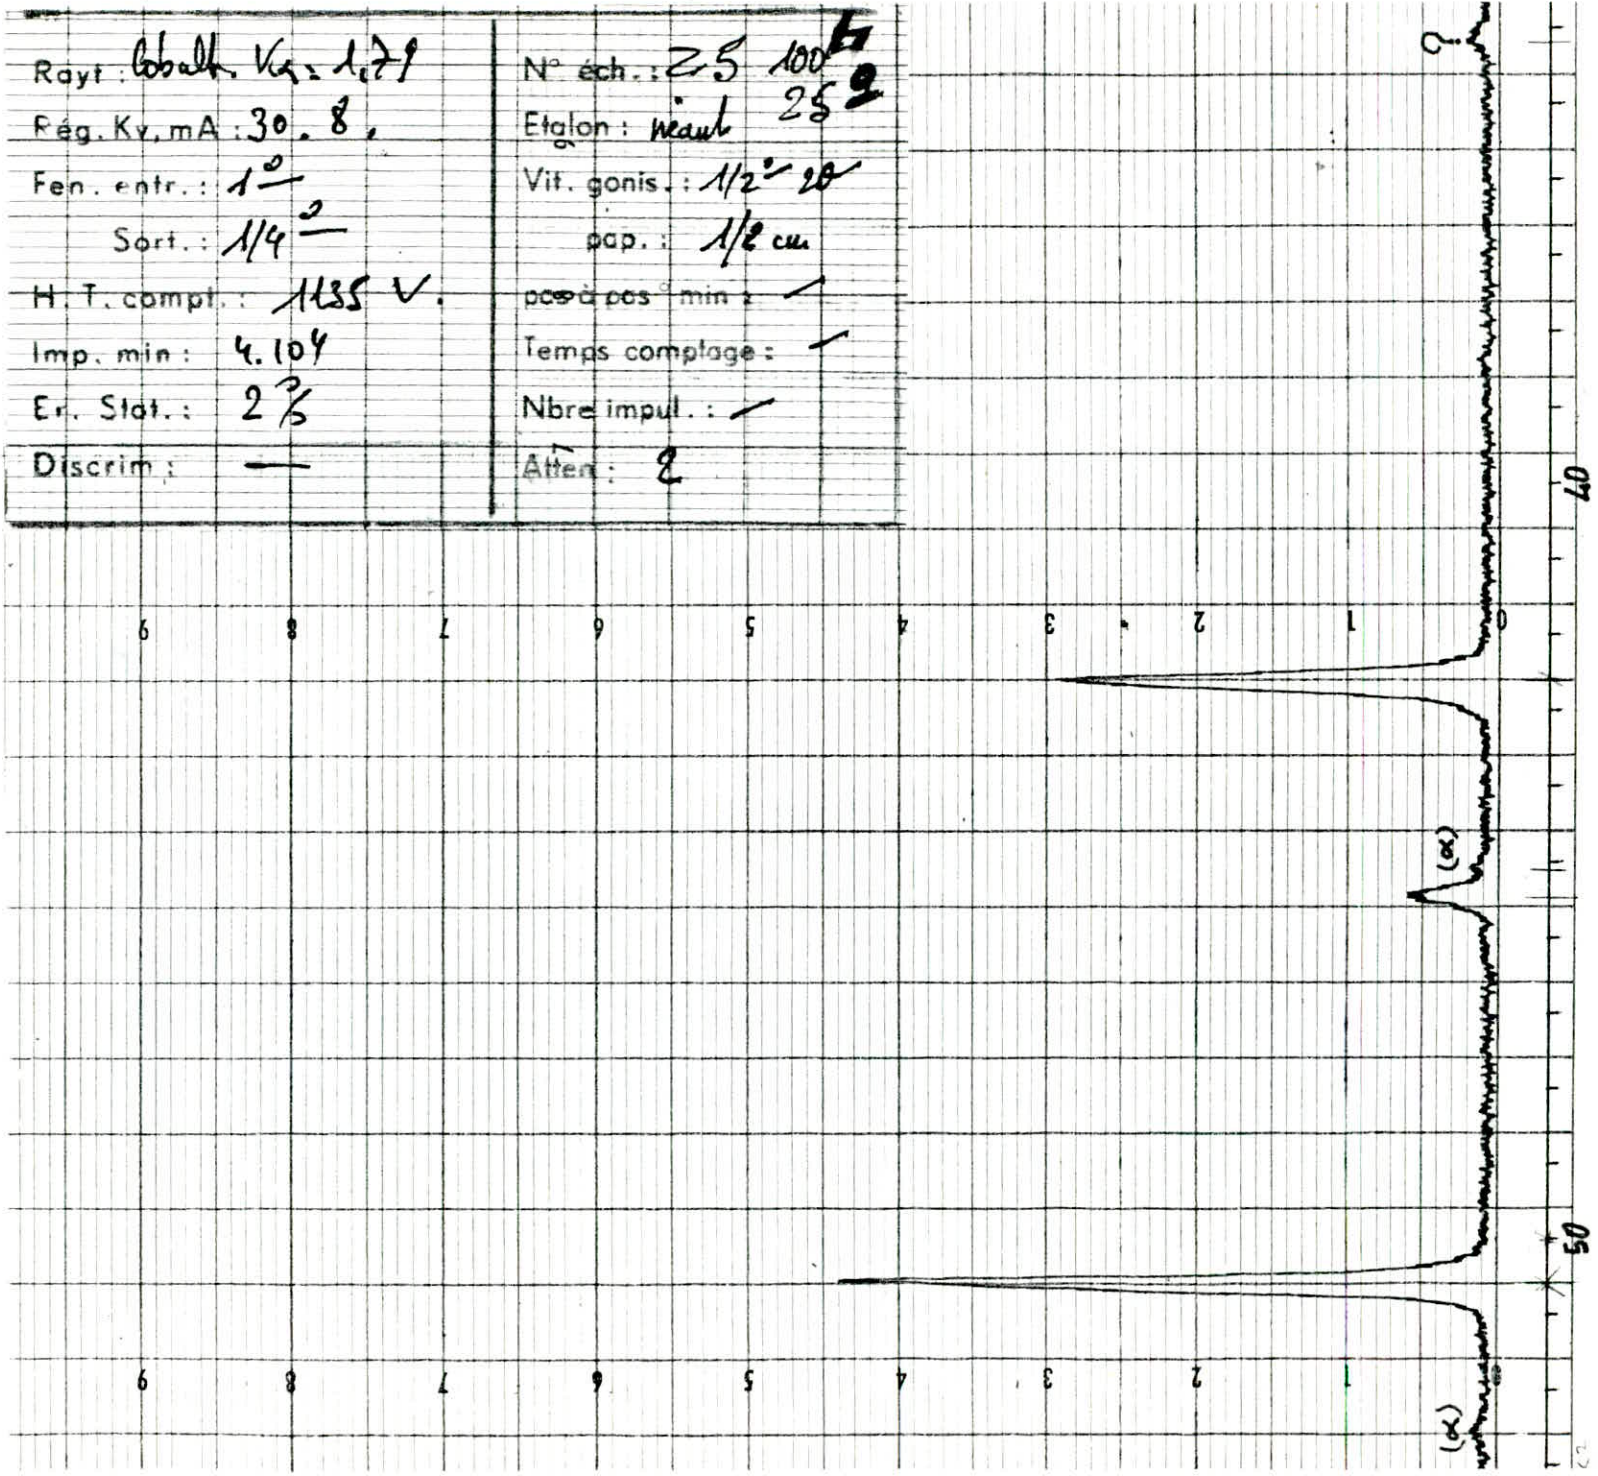 Rayt : Cobalt. Kα = 1,79
Rég. Kv, mA : 30 . 8 .
Fen. entr. : 1°
Sort. : 1/4°
H. T. compt. : 1135 V.
Imp. min : 4.104
Er. Stat. : 2 %
Discrim : —
N° éch. : Z5 100
25
Etalon : néant
Vit. gonis. : 1/2° 2θ
pap. : 1/2 cm
pas à pas ° min :
Temps comptage :
Nbre impul. :
Atten : 2
?
40
9 8 7 6 5 4 3 2 1 0
(α)
50
9 8 7 6 5 4 3 2 1 0
(α)